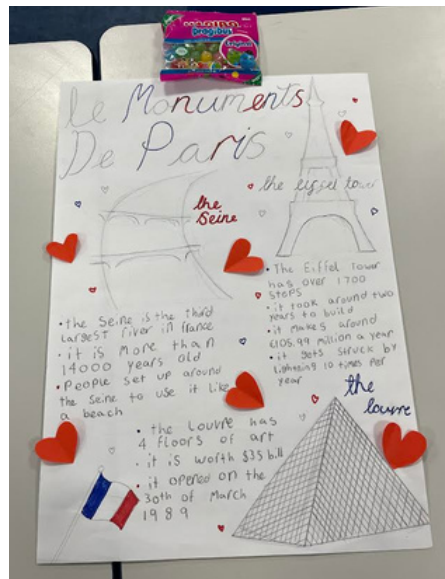 HARIBO
Dragibus
Original
Le Monuments
De Paris
the Seine
the eiffel tower
• The Eiffel Tower
has over 1700
steps
• it took around two
years to build
• it makes around
€105.99 million a year
• it gets struck by
lightning 10 times per
year
• the Seine is the third
largest river in france
• it is more than
14000 years old
• People set up around
the seine to use it like
a beach
the
louvre
• the Louvre has
4 floors of art
• it is worth $35 bill
• it opened on the
30th of March
1989